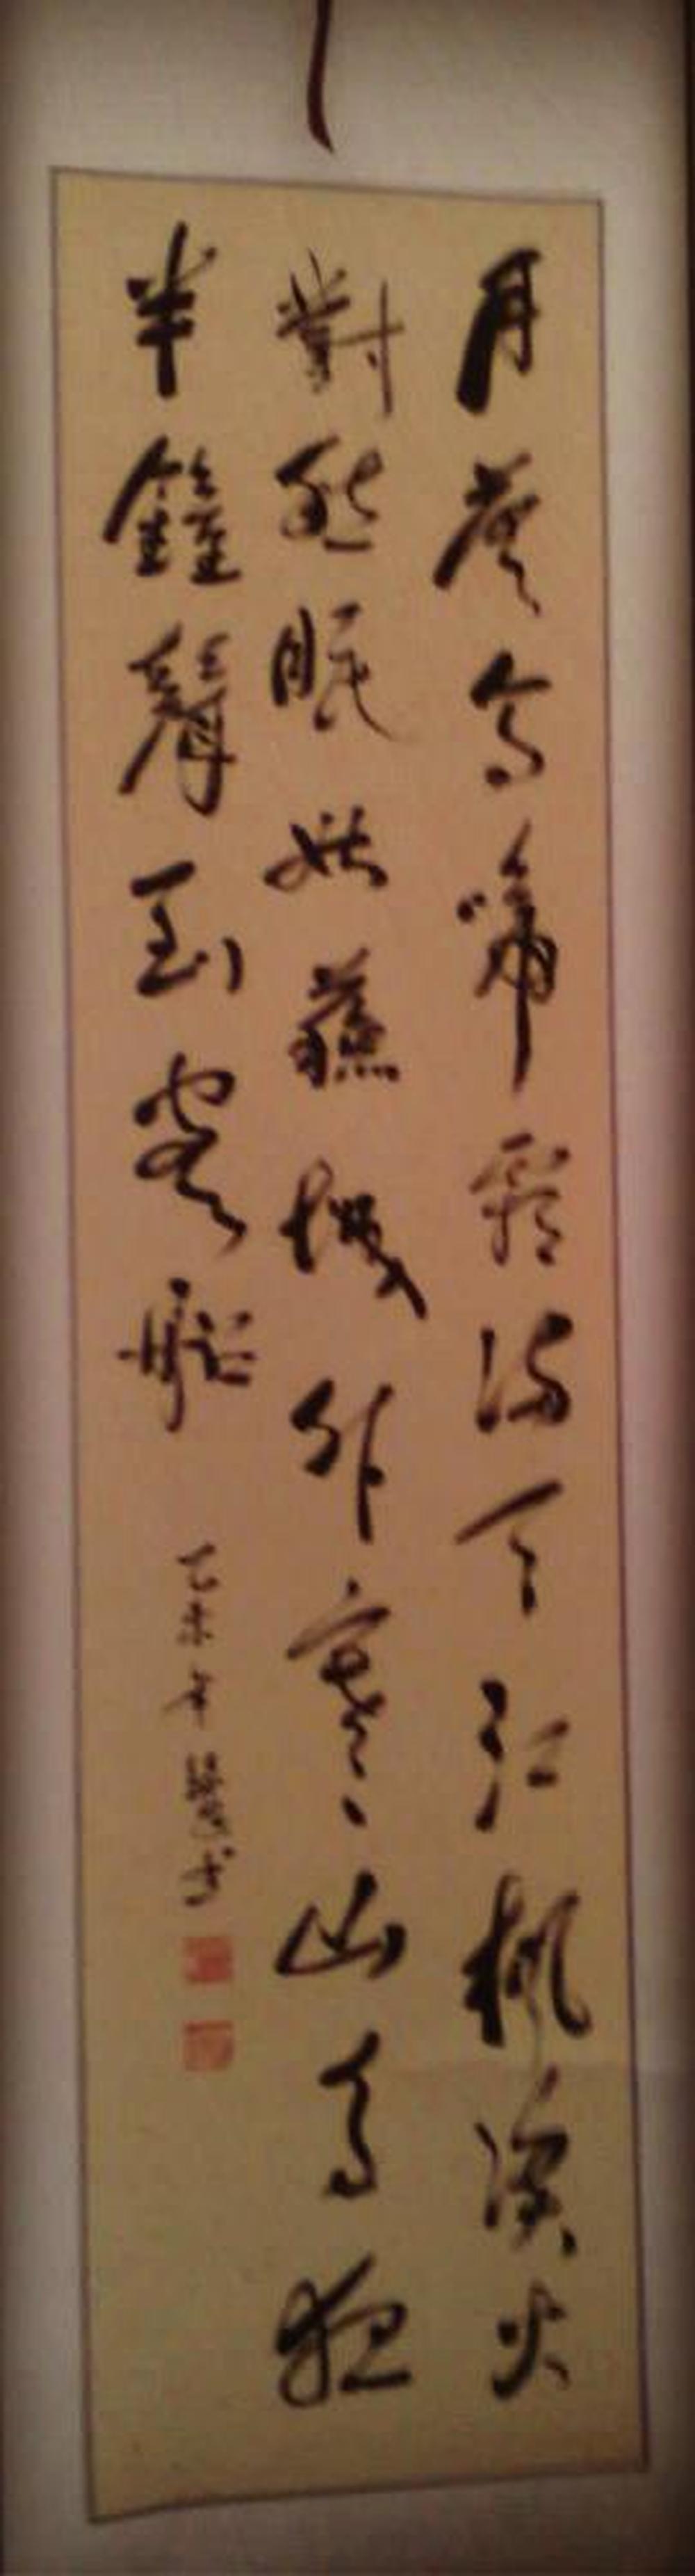 月落烏啼霜满天江楓漁火
對愁眠姑蘇城外寒山寺夜
半鐘聲到客船